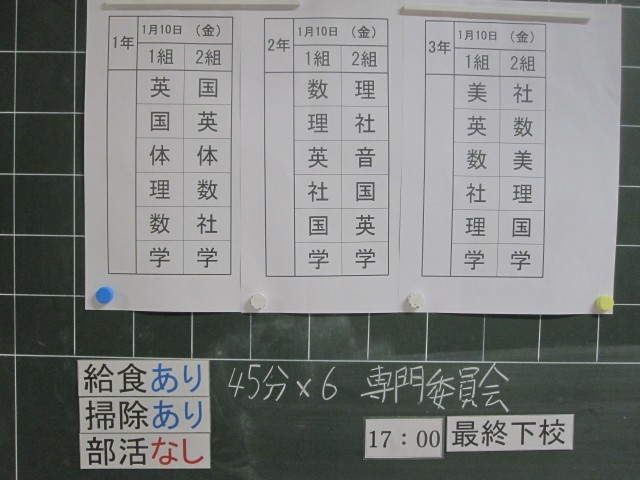 1年 1月10日 （金）
1組 2組
英 国
国 英
体 体
理 数
数 社
学 学
2年 1月10日 （金）
1組 2組
数 理
理 社
英 音
社 国
国 英
学 学
3年 1月10日 （金）
1組 2組
美 社
英 数
数 美
社 理
理 国
学 学
給食あり
掃除あり
部活なし
45分×6 専門委員会
17：00 最終下校